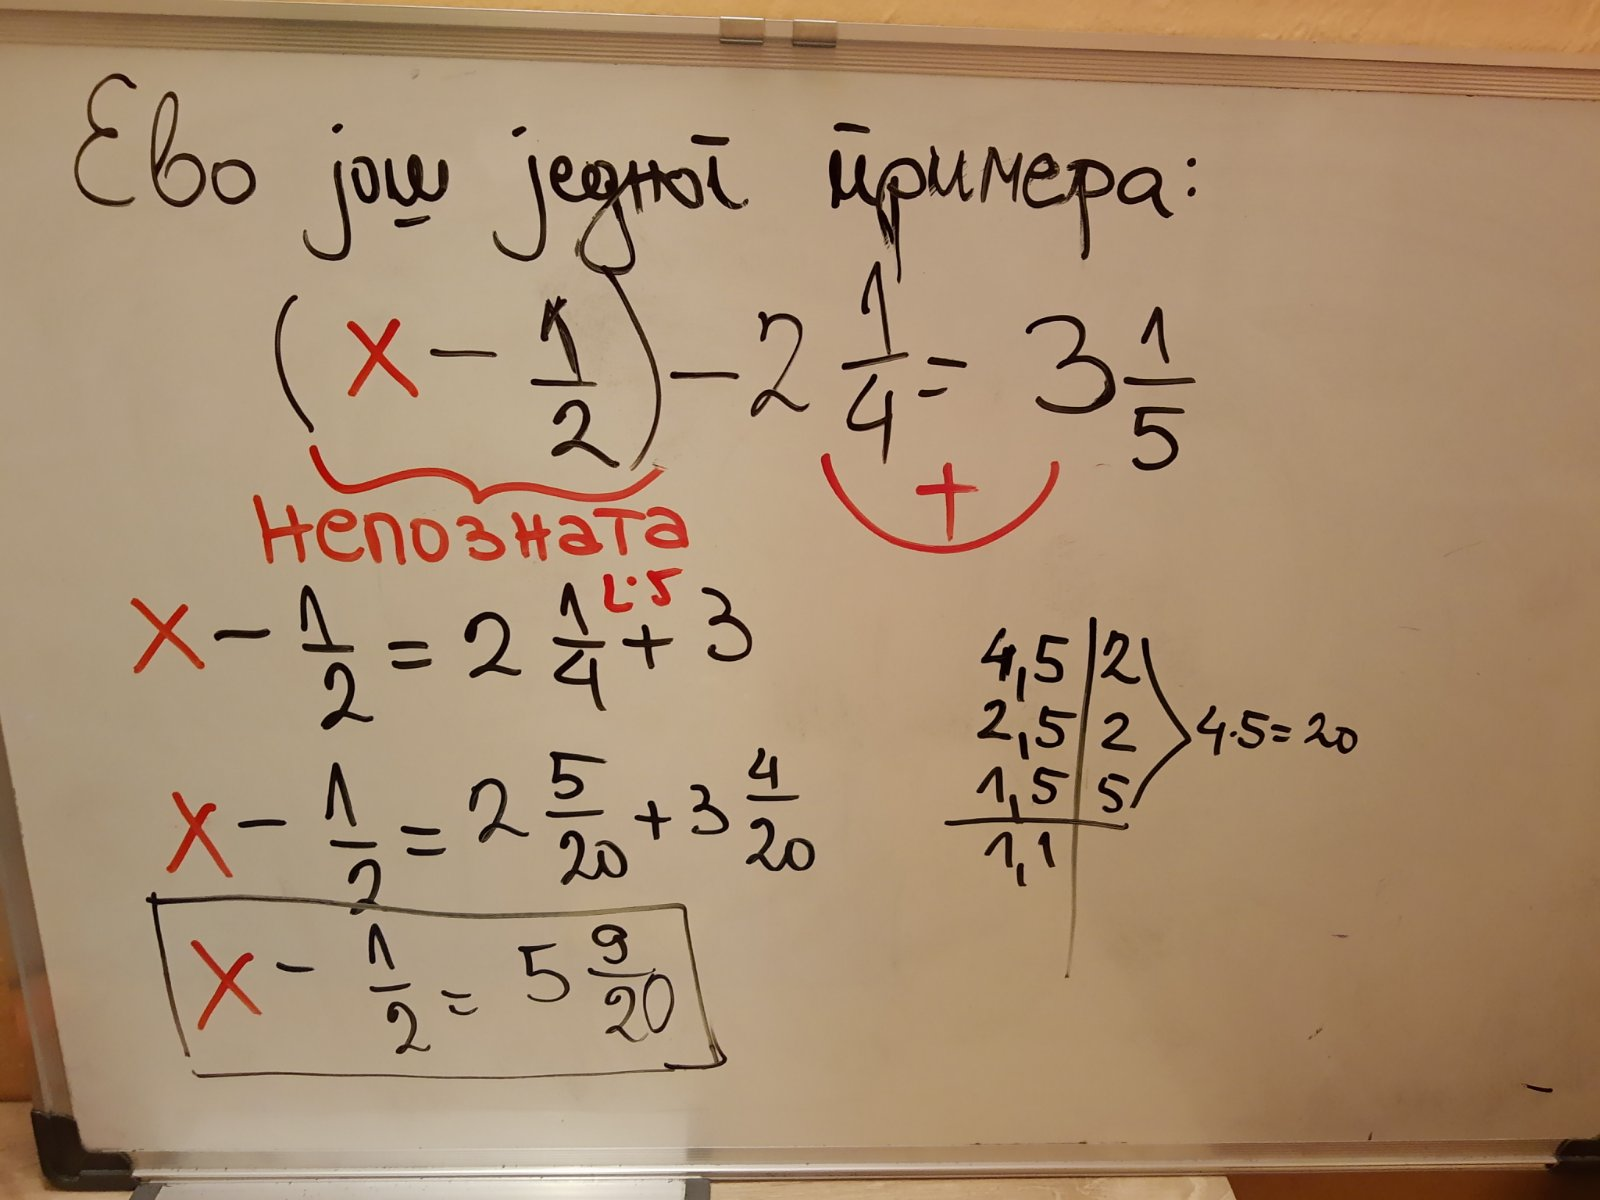 Ево још једног примера:
(x - 1/2) - 2 1/4 = 3 1/5
непозната +
x - 1/2 = 2 1/4 ⌊·5 + 3
x - 1/2 = 2 5/20 + 3 4/20
x - 1/2 = 5 9/20
4,5 | 2
2,5 | 2
1,5 | 5
1,1 |
4·5=20